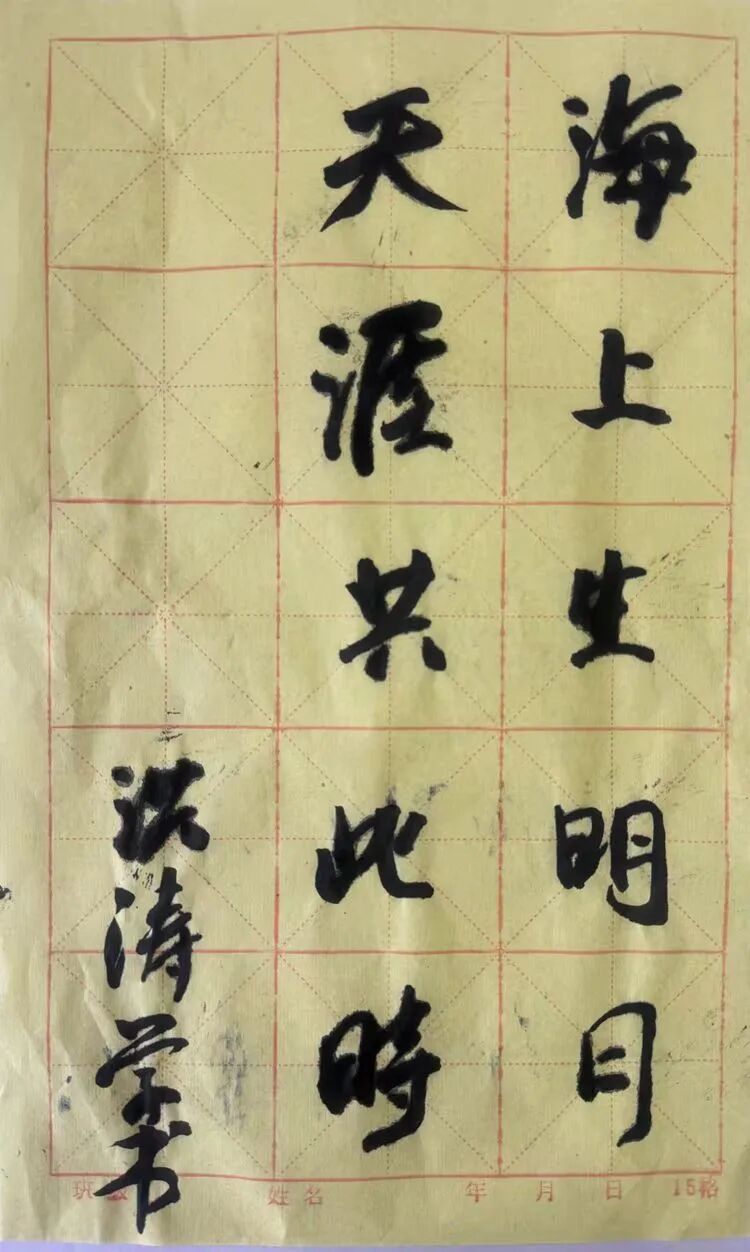 海上生明月
天涯共此時
洪涛学书
班级 姓名 年 月 日 15格